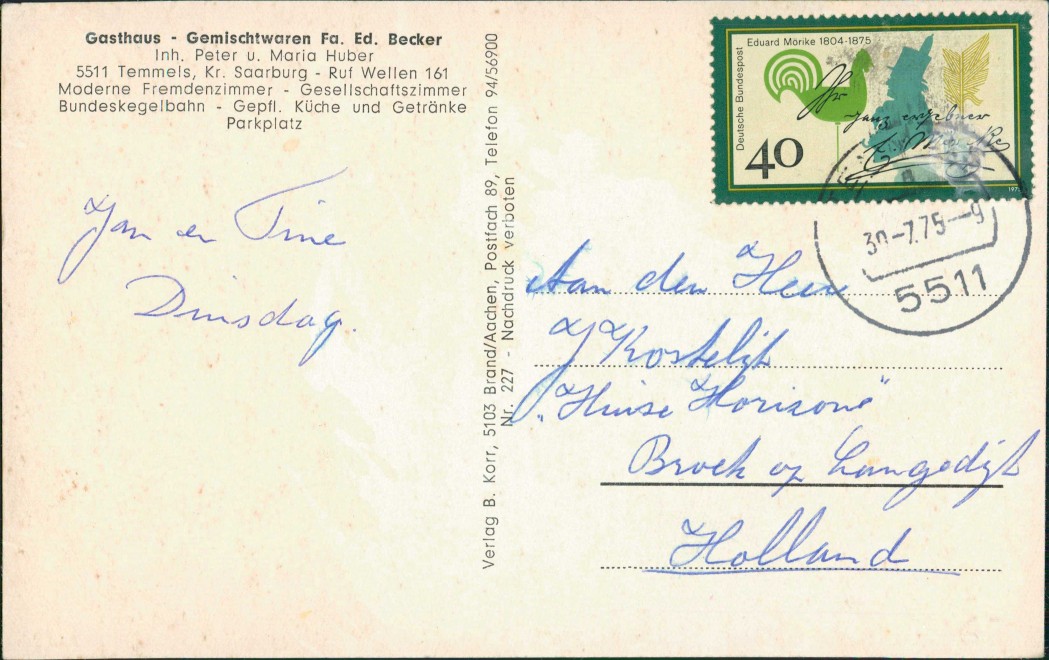 Gasthaus - Gemischtwaren Fa. Ed. Becker
Inh. Peter u. Maria Huber
5511 Temmels, Kr. Saarburg - Ruf Wellen 161
Moderne Fremdenzimmer - Gesellschaftszimmer
Bundeskegelbahn - Gepfl. Küche und Getränke
Parkplatz
Jan en Tine
Dinsdag.
Verlag B. Korr, 5103 Brand/Aachen, Postfach 89, Telefon 94/56900
Nr. 227 - Nachdruck verboten
Eduard Mörike 1804-1875
Deutsche Bundespost
40
ganz ergebner
1975
30-7.75--9
5511
Aan den Heer
J Kostelijk
"Huise Horizont"
Broek op Langedijk
Holland